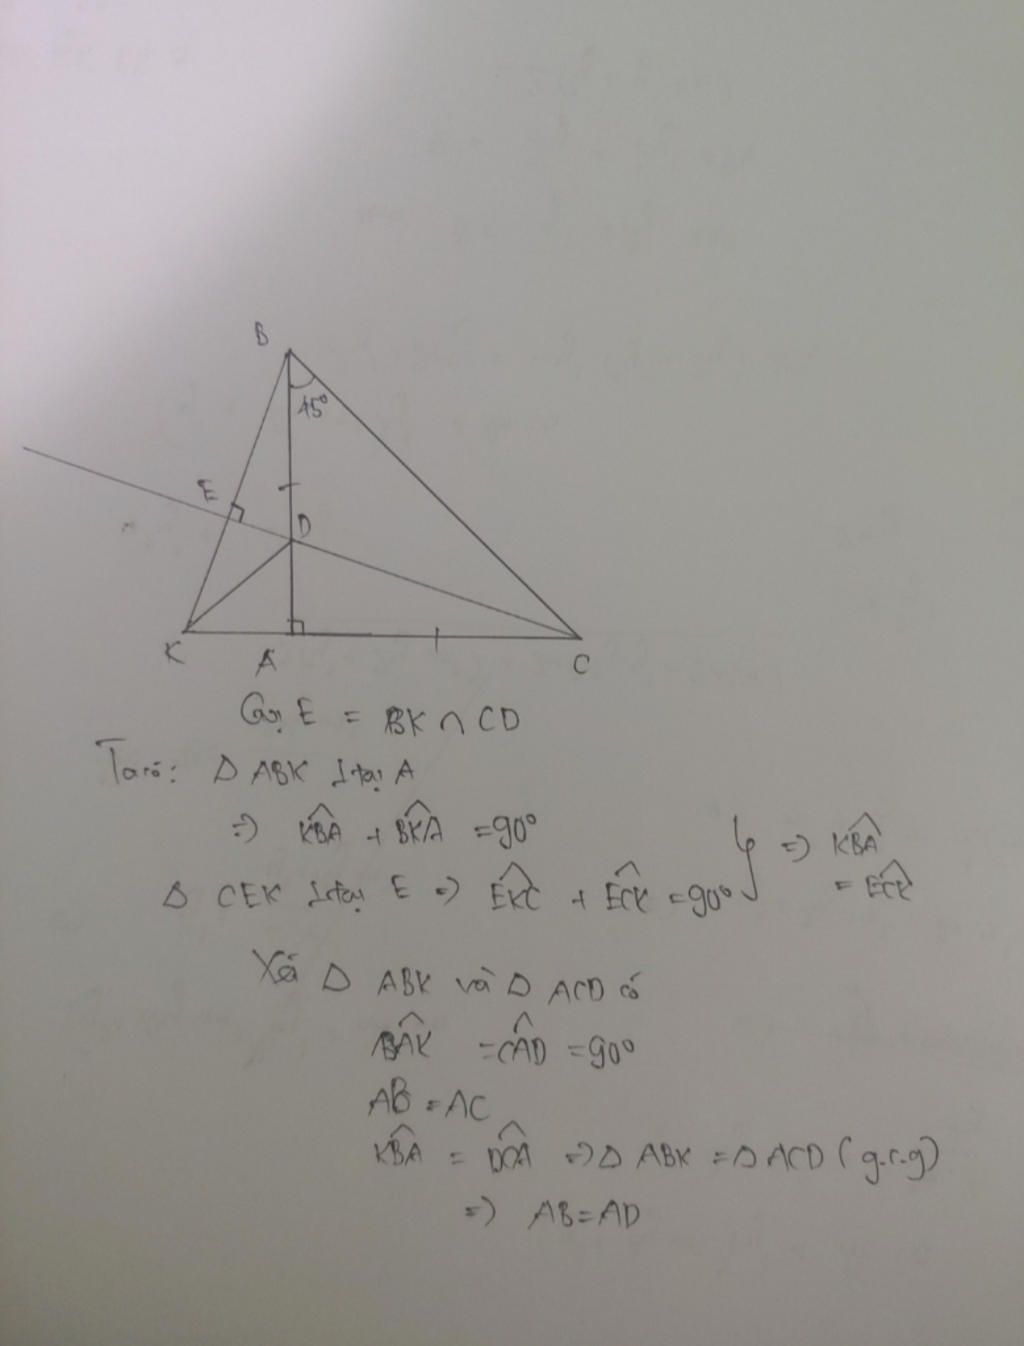 B
45°
E
D
K
A
C
Gọi E = BK ∩ CD
Ta có: Δ ABK ⊥ tại A
=> K̂BA + B̂KA = 90°
Δ CEK ⊥ tại E => ÊKC + ÊCK = 90° } => K̂BA
= ÊCK
Xét Δ ABK và Δ ACD có
B̂AK = ĈAD = 90°
AB = AC
K̂BA = D̂CA => Δ ABK = Δ ACD (g.c.g)
=> AB = AD